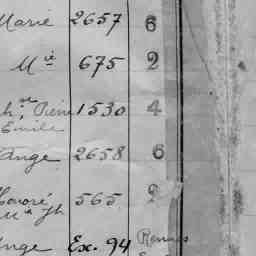 Marie 2657 6
Mie 675 2
Pierre 1530 4
Emile
Ange 2658 6
Honoré 565 2
Mie Jh
Ange Ex. 94 Rennes